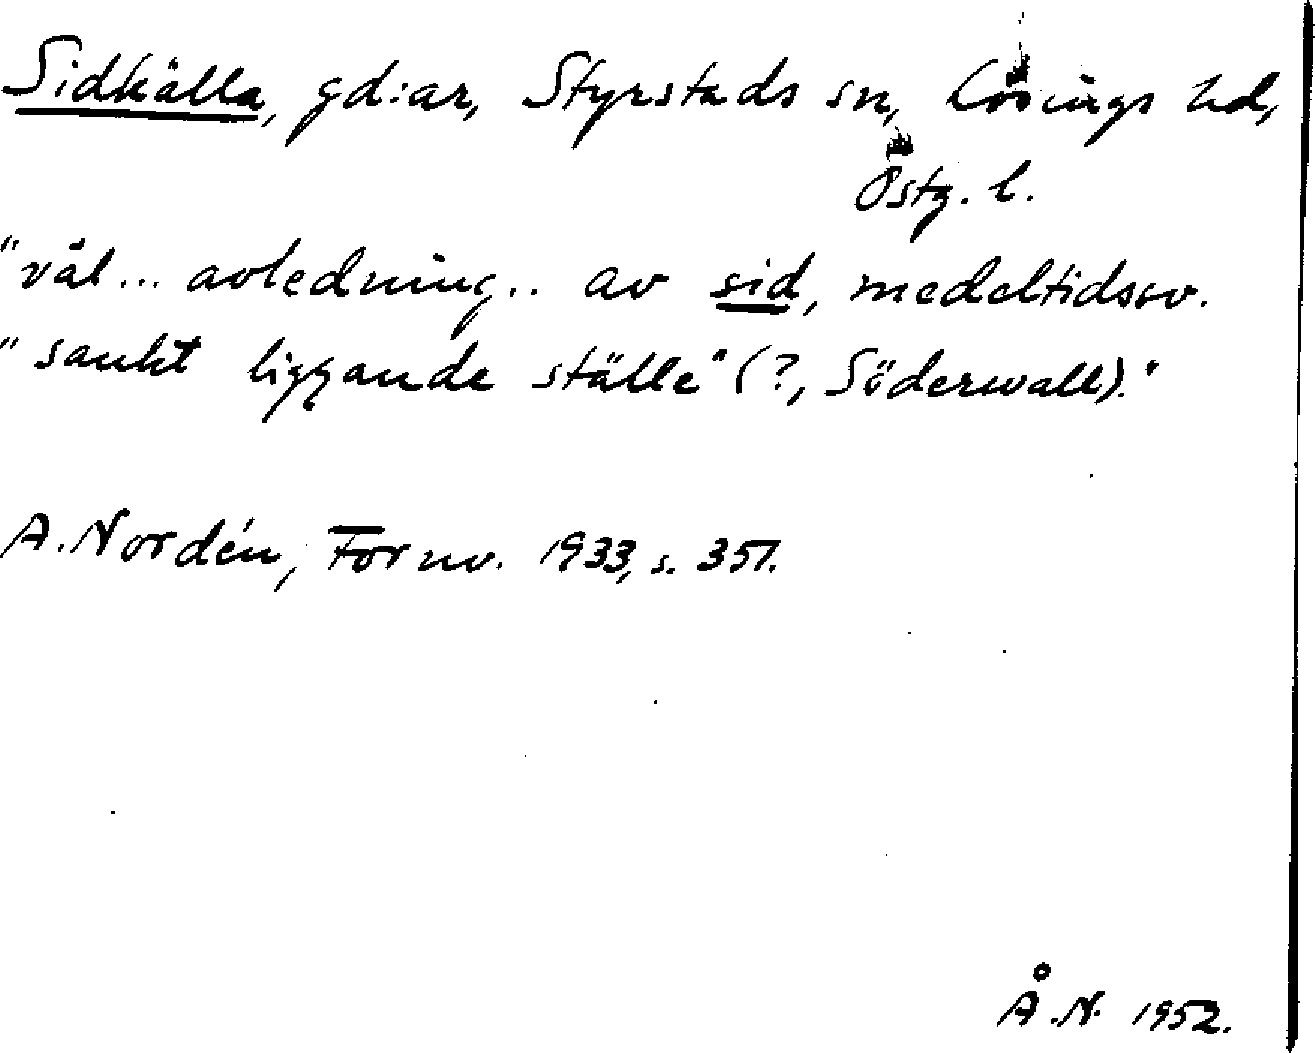 Sidkälla, gd:ar, Styrstads sn, Lösings hd,
Östg. l.
"väl... avledning.. av sid, medeltidssv.
"sankt liggande ställe" (?, Söderwall)."
A. Nordén, Fornv. 1933, s. 351.
Å.N. 1952.